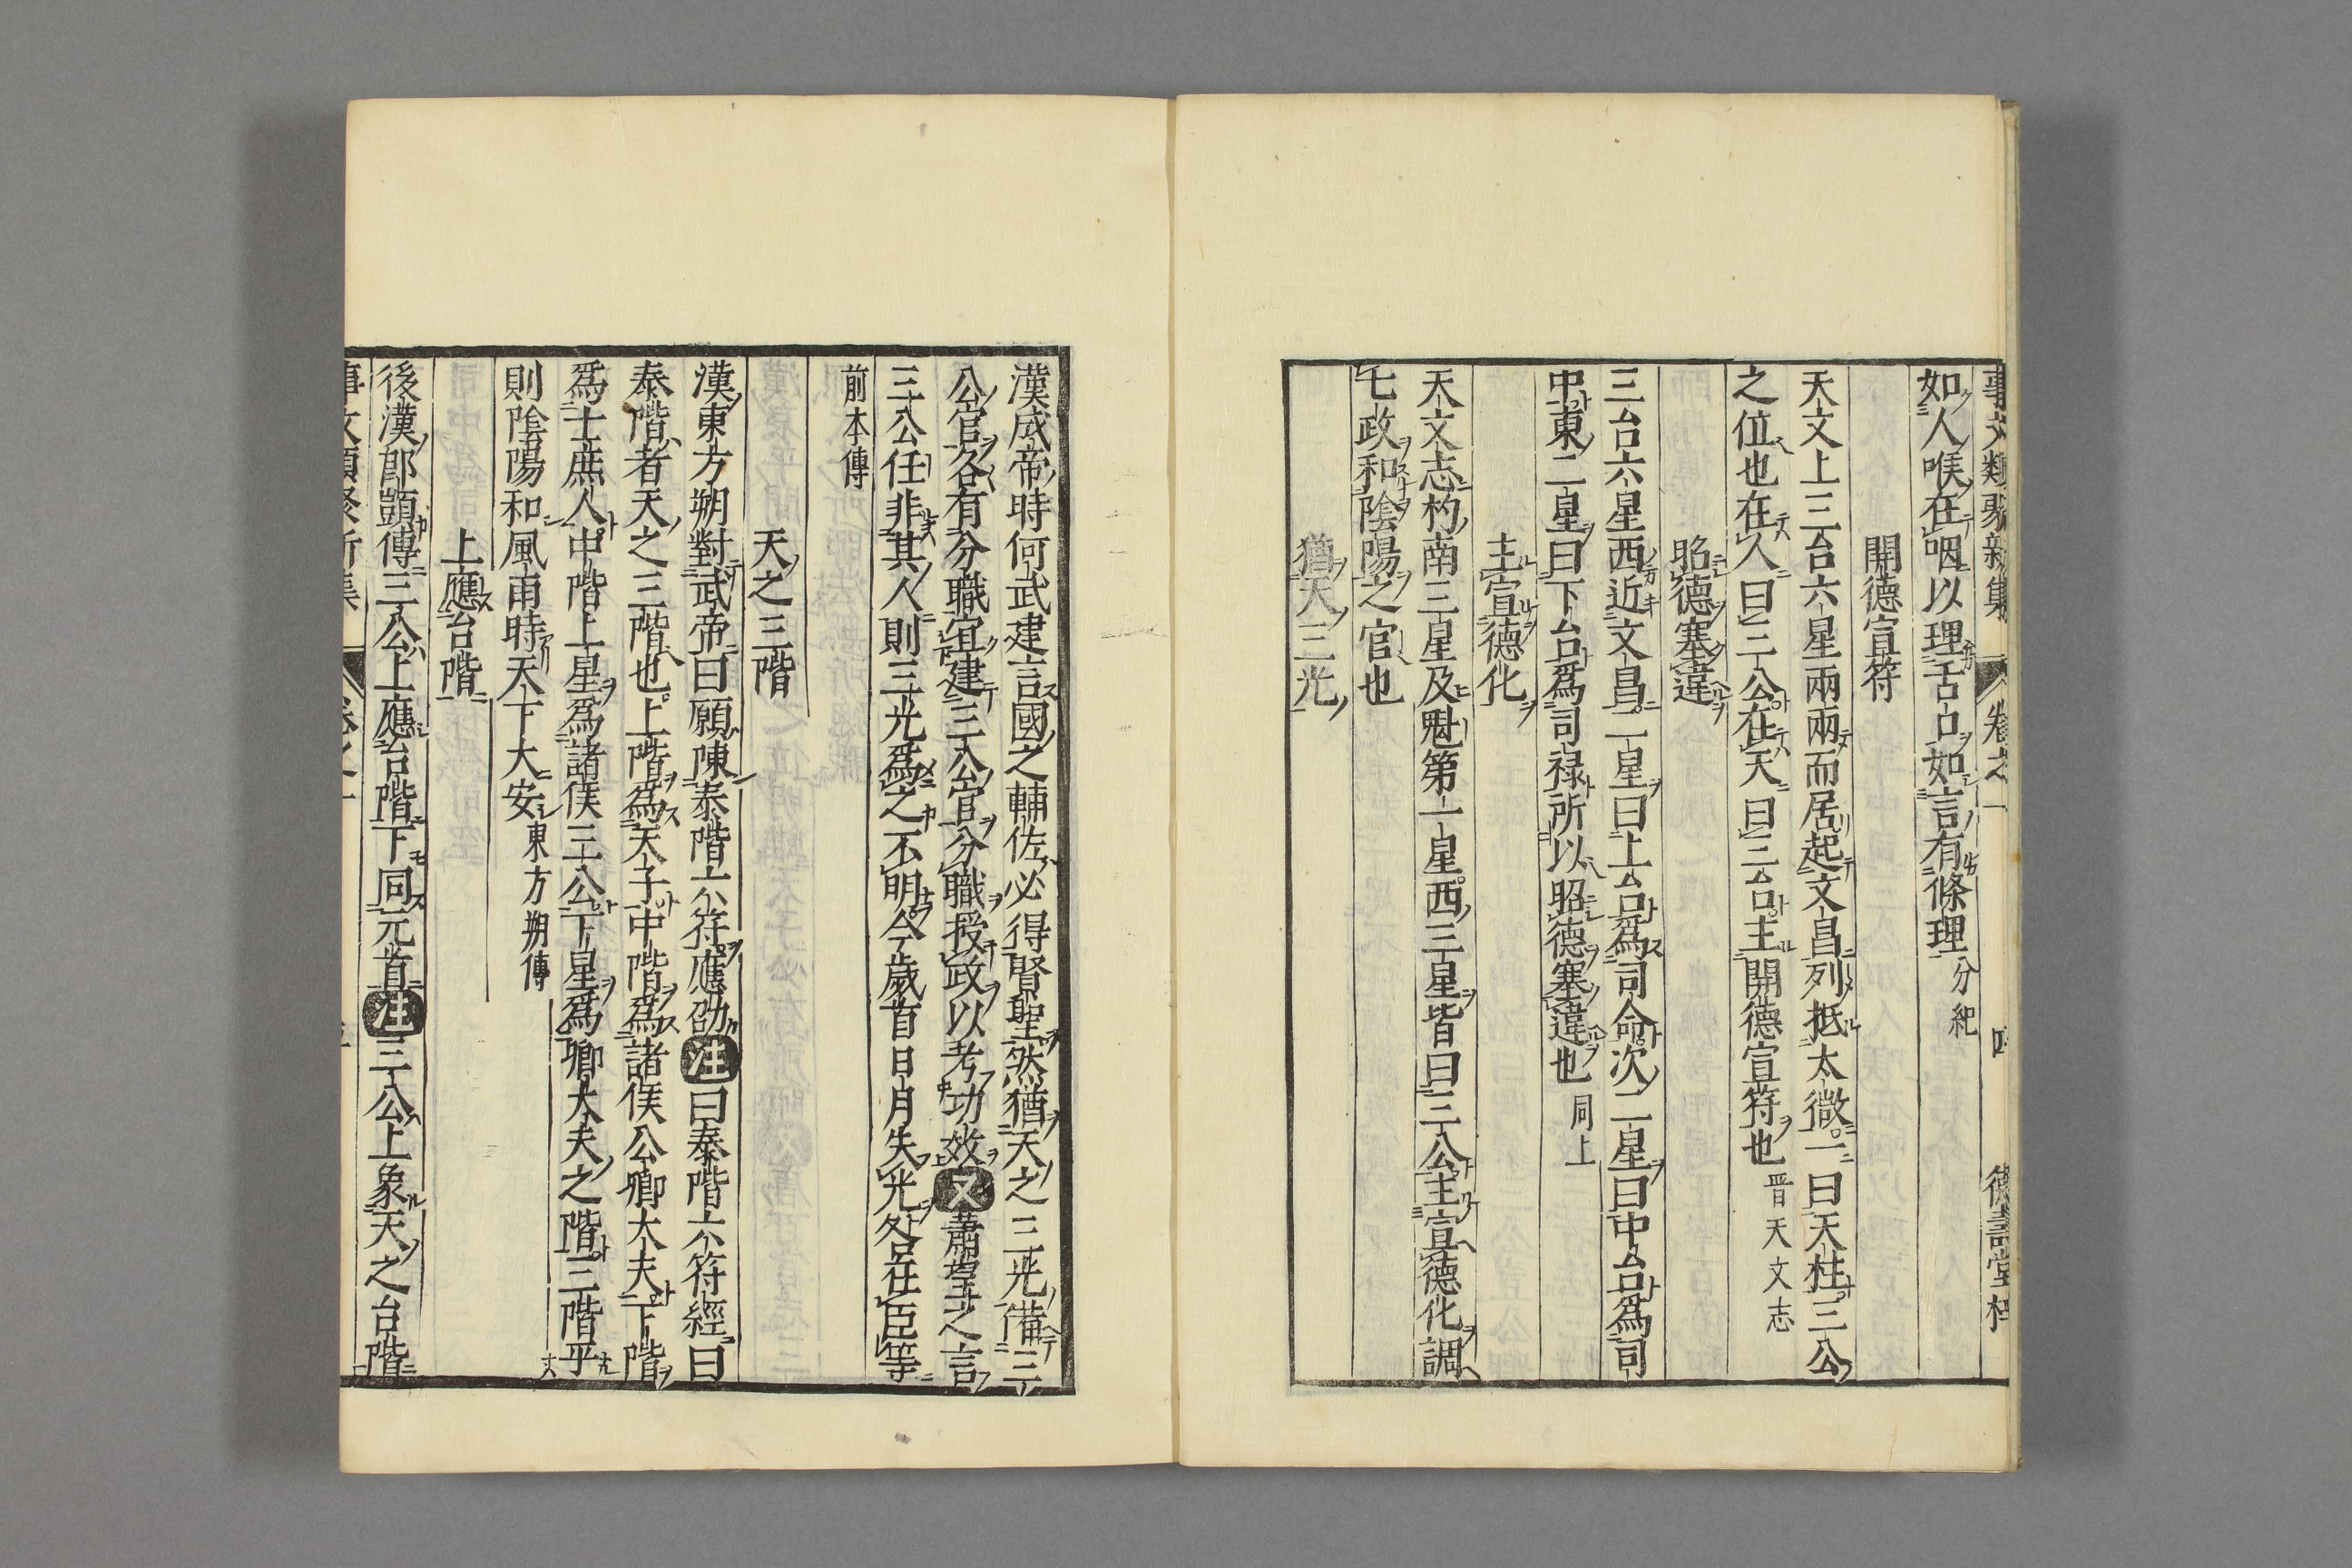 事文類聚新集 卷之一 四 德壽堂梓
如人喉在咽以理舌口如言有條理分紀
開德宣符
天文上三台六星兩兩而居起文昌列抵太微一曰天柱三公
之位也在人曰三公在天曰三台主開德宣符也晋天文志
昭德塞違
三台六星西近文昌二星曰上台爲司命次二星曰中台爲司
中東二星曰下台爲司禄所以昭德塞違也同上
主宣德化
天文志杓南三星及魁第一星西三星皆曰三公主宣德化調
七政和陰陽之官也
猶天三光
漢成帝時何武建言國之輔佐必得賢聖然猶天之三光備三
公官各有分職宜建三公官分職授政以考功效又蕭望之言
三公任非其人則三光爲之不明今歲首日月失光咎在臣等
前本傳
天之三階
漢東方朔對武帝曰願陳泰階六符應劭注曰泰階六符經曰
泰階者天之三階也上階爲天子中階爲諸侯公卿大夫下階
爲士庶人中階上星爲諸侯三公下星爲卿大夫之階三階平
則陰陽和風雨時天下大安東方朔傳
上應台階
後漢郎顗傳三公上應台階下同元首注三公上象天之台階
事文類聚新集